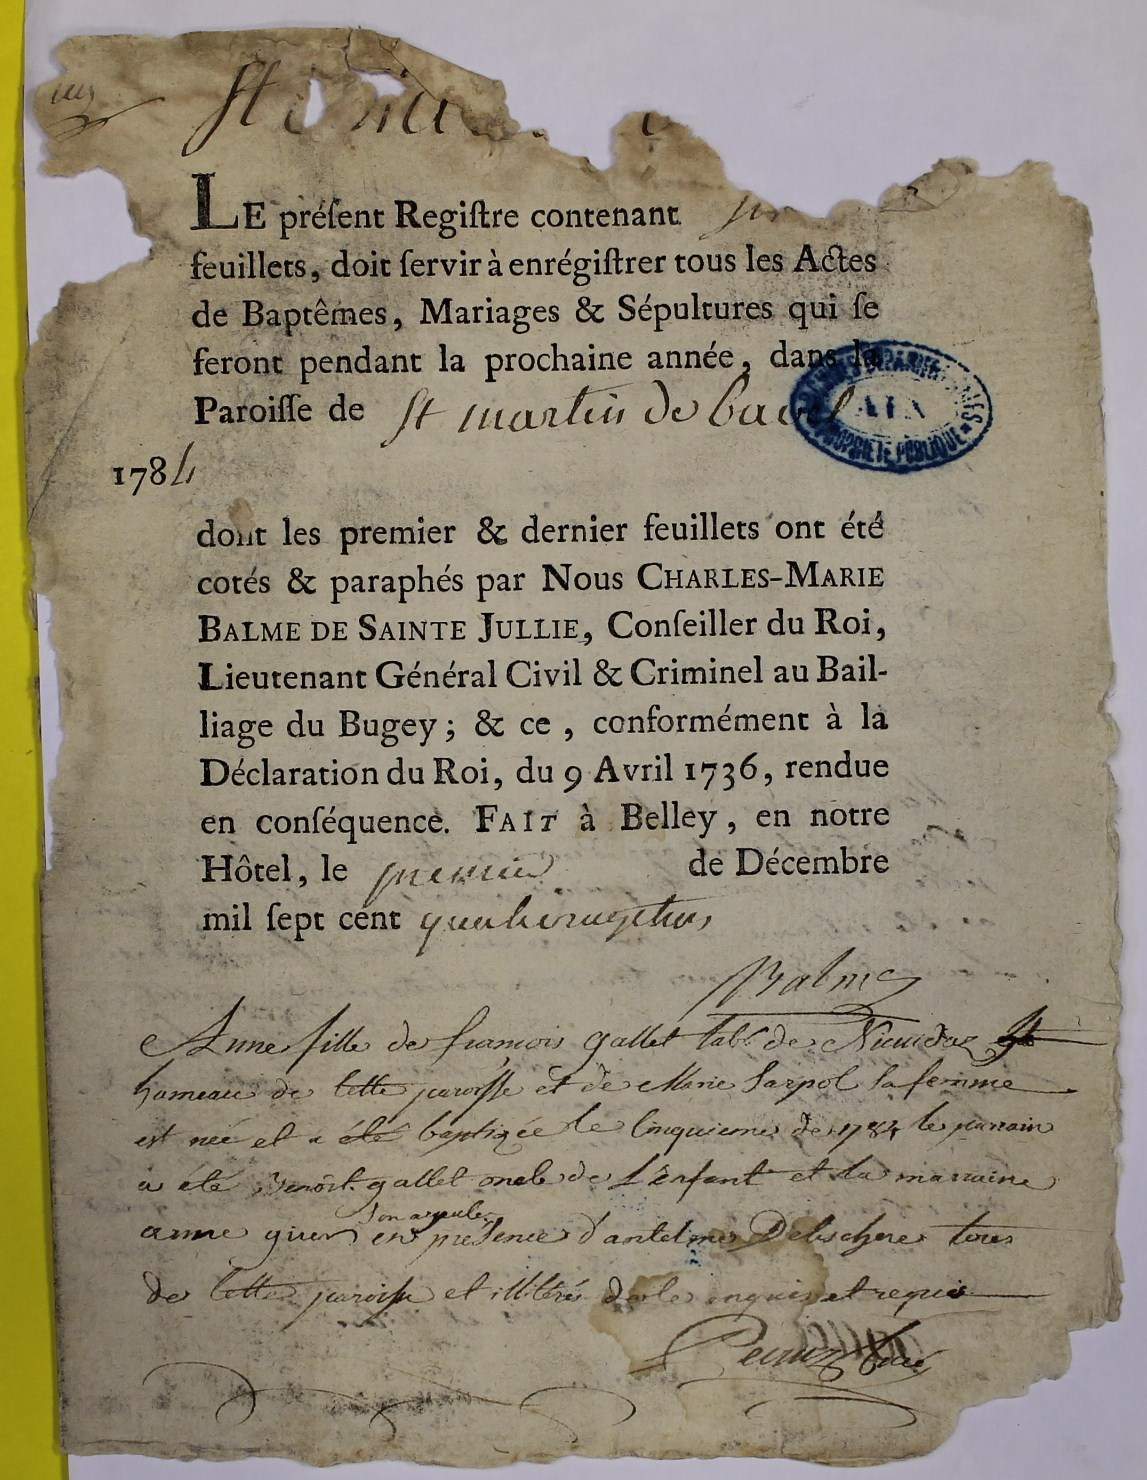 St
LE préſent Regiſtre contenant
feuillets, doit ſervir à enrégiſtrer tous les Actes
de Baptêmes, Mariages & Sépultures qui ſe
feront pendant la prochaine année, dans la
Paroiſſe de St martin de bavel
AIN
PROPRIÉTÉ PUBLIQUE
1784
dont les premier & dernier feuillets ont été
cotés & paraphés par Nous CHARLES-MARIE
BALME DE SAINTE JULLIE, Conſeiller du Roi,
Lieutenant Général Civil & Criminel au Bail-
liage du Bugey ; & ce , conformément à la
Déclaration du Roi, du 9 Avril 1736, rendue
en conſéquence. FAIT à Belley , en notre
Hôtel, le premier de Décembre
mil ſept cent
Balme
Anne fille de francois gallet lab.r de
hameau de cette paroisse et de Marie Sarpol sa femme
est née et a été baptizée le cinquieme de 1784 le parrain
a été Benoit gallet oncle de L'enfant et la marraine
anne en présence d'antelme tous
de cette paroisse et illiteré de ce enquis et requis
curé